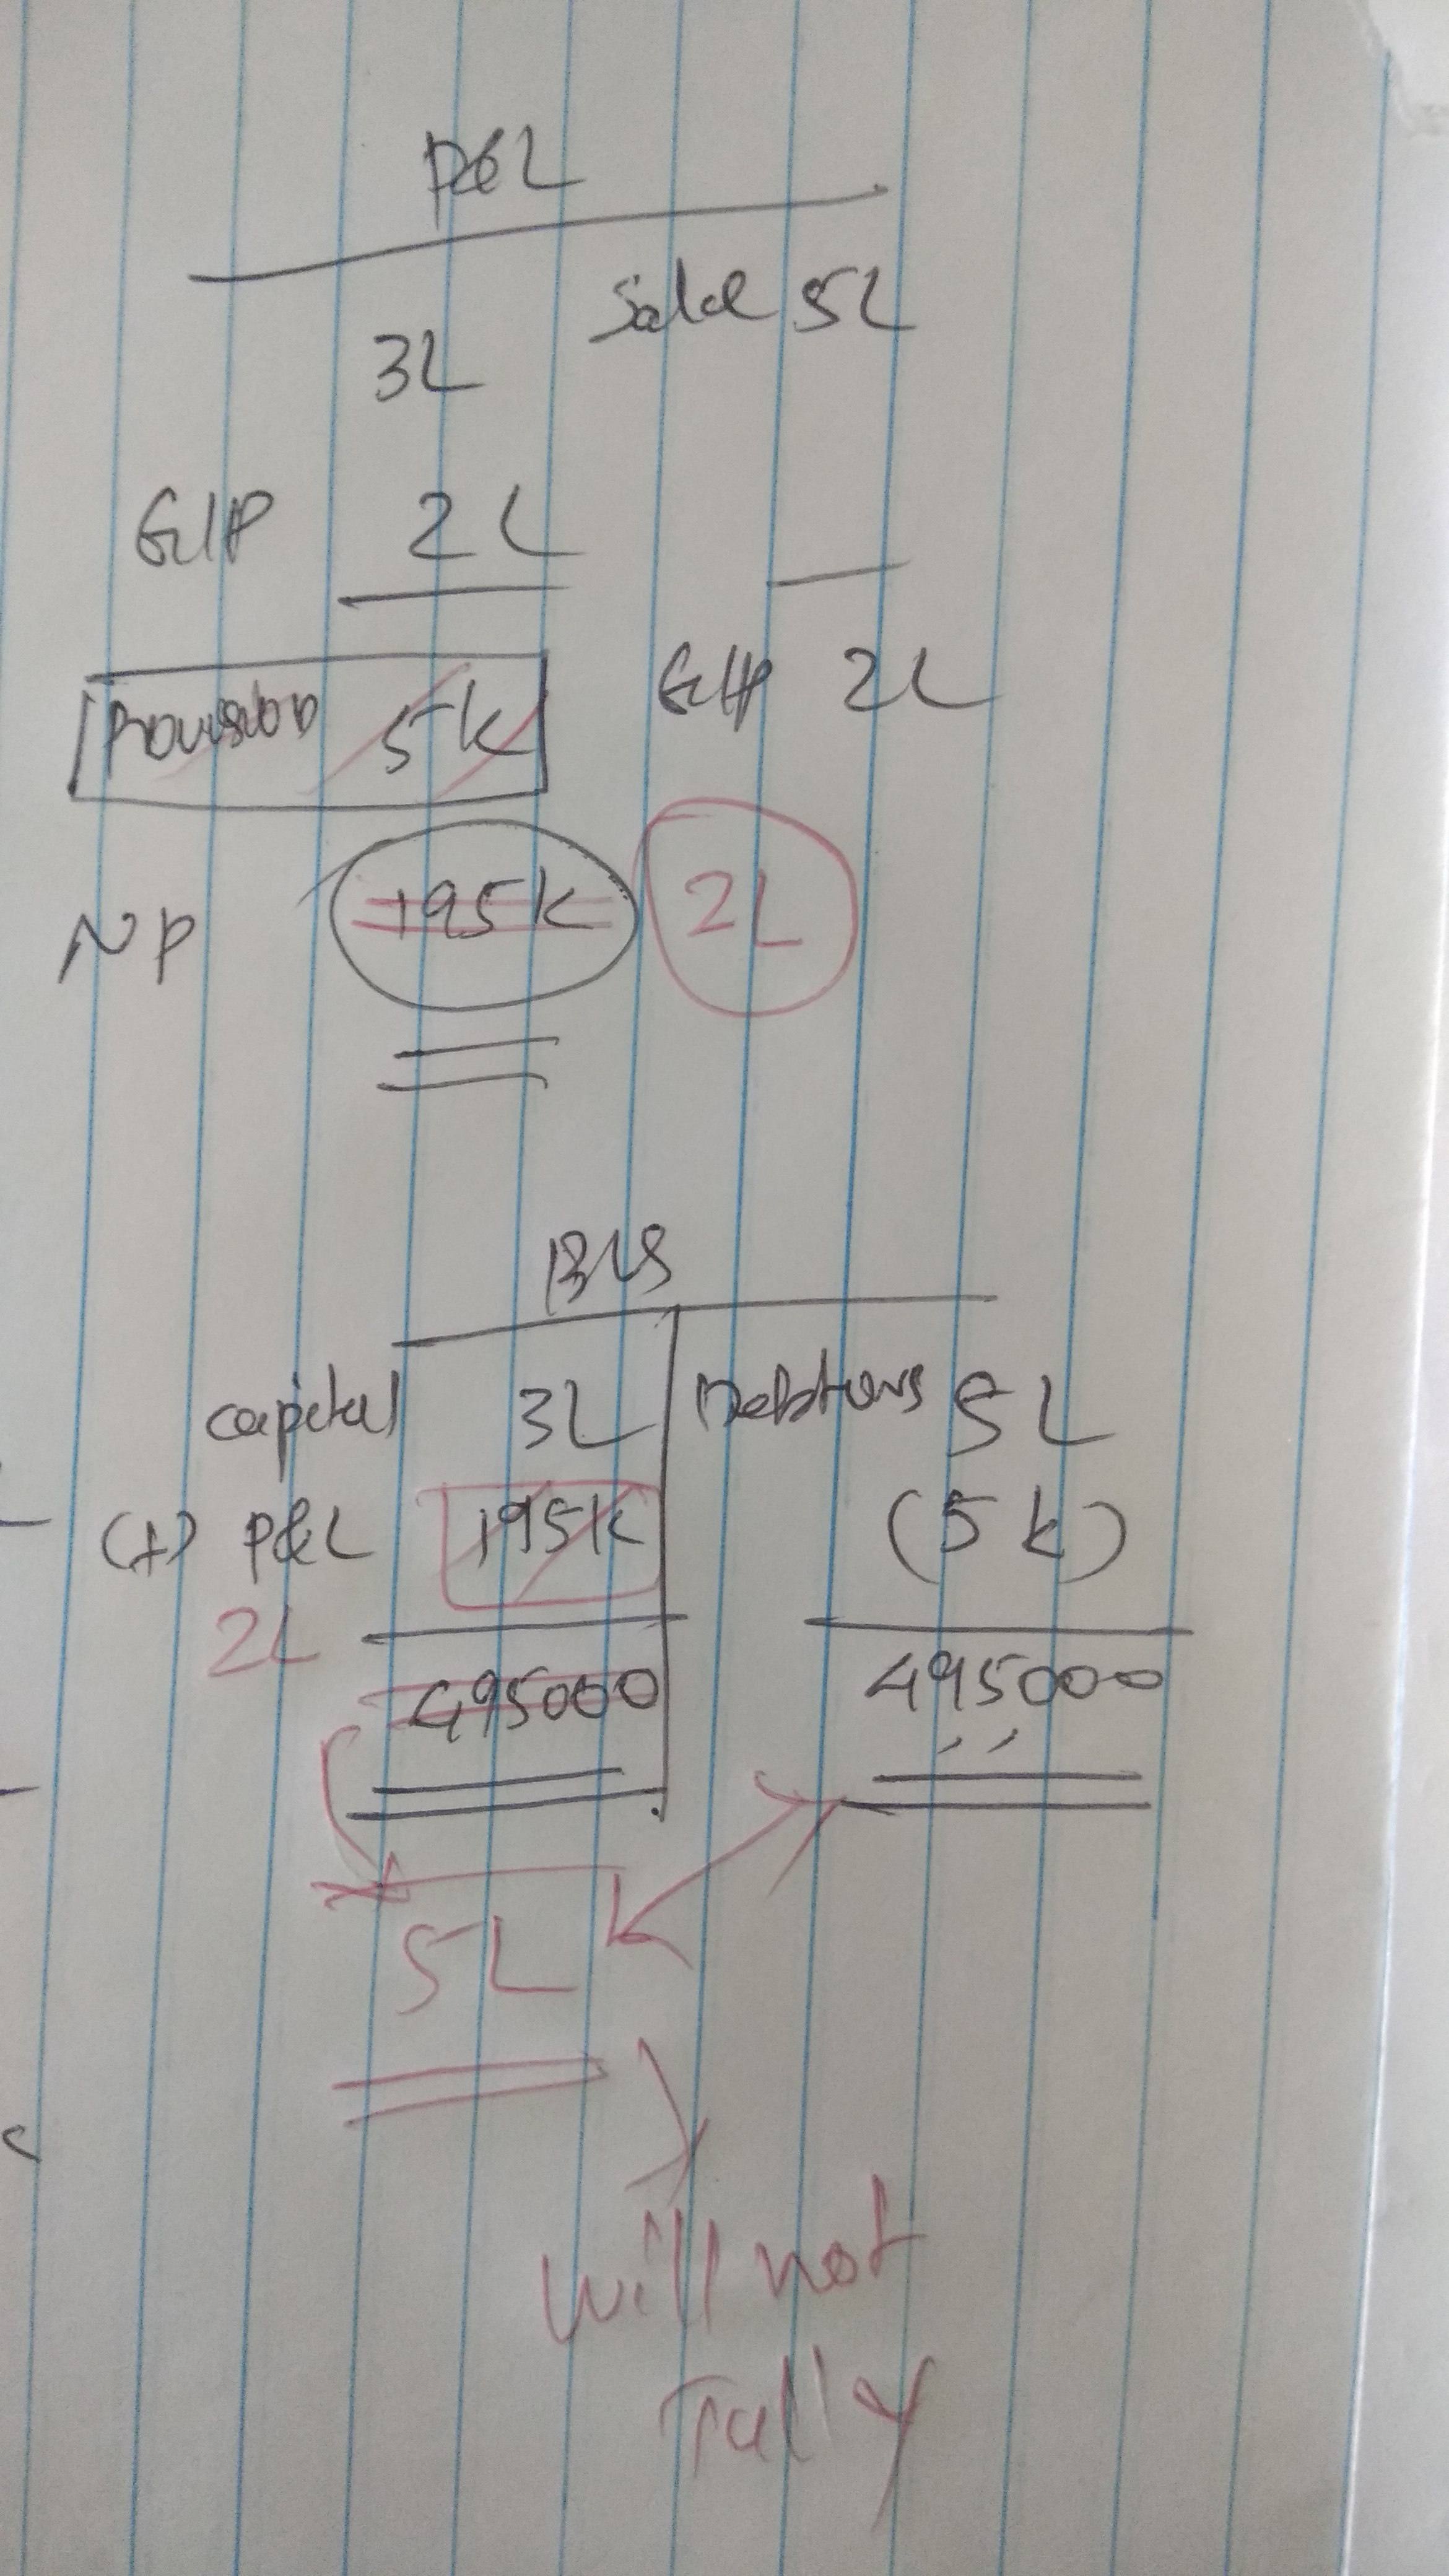 P&L
Sale 5L
3L
G/P 2L
Provision 5k G/P 2L
NP 195k 2L
B/S
capital 3L Debtors 5L
(+) P&L 195k (5k)
2L
495000 495000
5L
will not
Tally